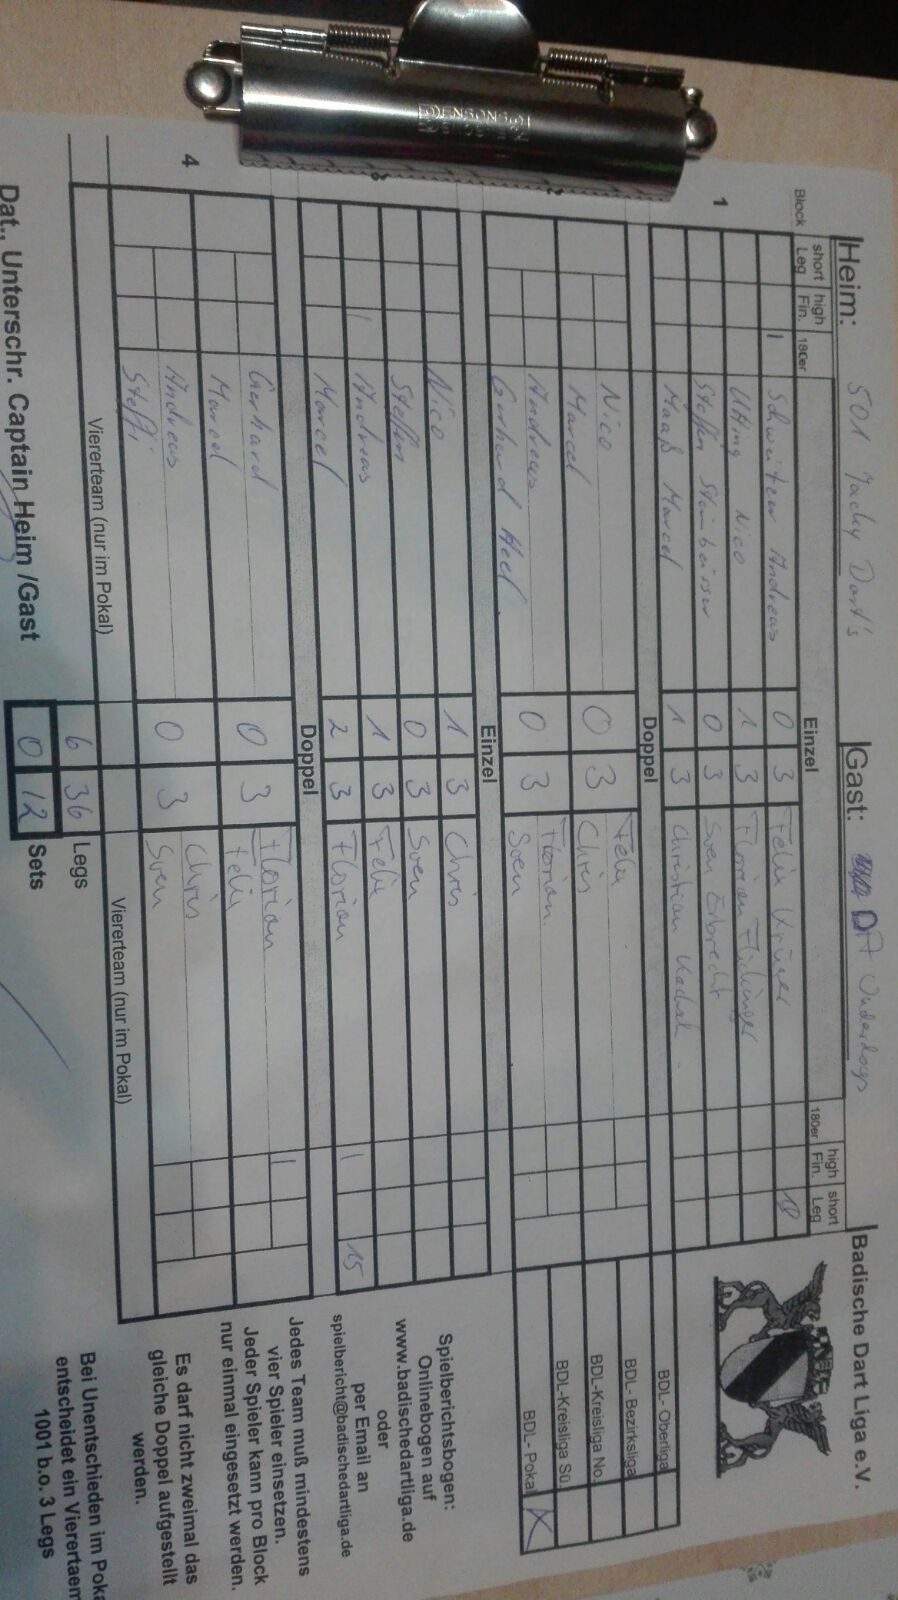 Heim: 501 Jacky Dart's Gast: DA Underdogs Badische Dart Liga e.V.
Block short Leg high Fin. 180er Einzel 180er high Fin. short Leg
1 Schweitzer Andreas 0 3 Felix 18
Utting Nico 1 3 Florian
Steffen 0 3 Sven
Maaß Marcel 1 3 Christian
Doppel
Nico Felix
Marcel 0 3 Chris
Andreas Florian
Gerhard Heel 0 3 Sven
Einzel
Nico 1 3 Chris
Steffen 0 3 Sven
Andreas 1 3 Felix
Marcel 2 3 Florian 15
Doppel
4 Gerhard Florian
Marcel 0 3 Felix
Andreas Chris
Steffi 0 3 Sven
Viererteam (nur im Pokal) Viererteam (nur im Pokal)
6 36 Legs
Dat., Unterschr. Captain Heim /Gast 0 12 Sets
BDL- Oberliga
BDL- Bezirksliga
BDL-Kreisliga No.
BDL-Kreisliga Sü.
BDL- Pokal X
Spielberichtsbogen:
Onlinebogen auf
www.badischedartliga.de
oder
per Email an
spielbericht@badischedartliga.de
Jedes Team muß mindestens
vier Spieler einsetzen.
Jeder Spieler kann pro Block
nur einmal eingesetzt werden.
Es darf nicht zweimal das
gleiche Doppel aufgestellt
werden.
Bei Unentschieden im Poka
entscheidet ein Viererteam
1001 b.o. 3 Legs